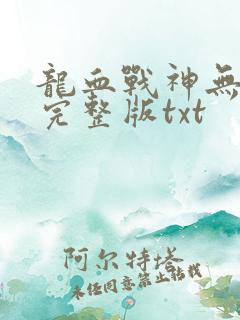 龍血戰神無
完整版txt
阿尔特塔
未经同意禁止转载